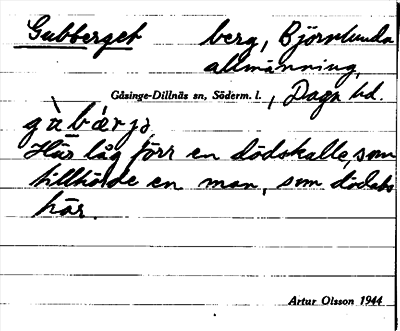 Gubberget berg, Björnlunda
allmänning,
Gåsinge-Dillnäs sn, Söderm. l., Daga hd.
gù̀bǽrjə
Här låg förr en dödskalle, som
tillhörde en man, som dödats
här.
Artur Olsson 1944